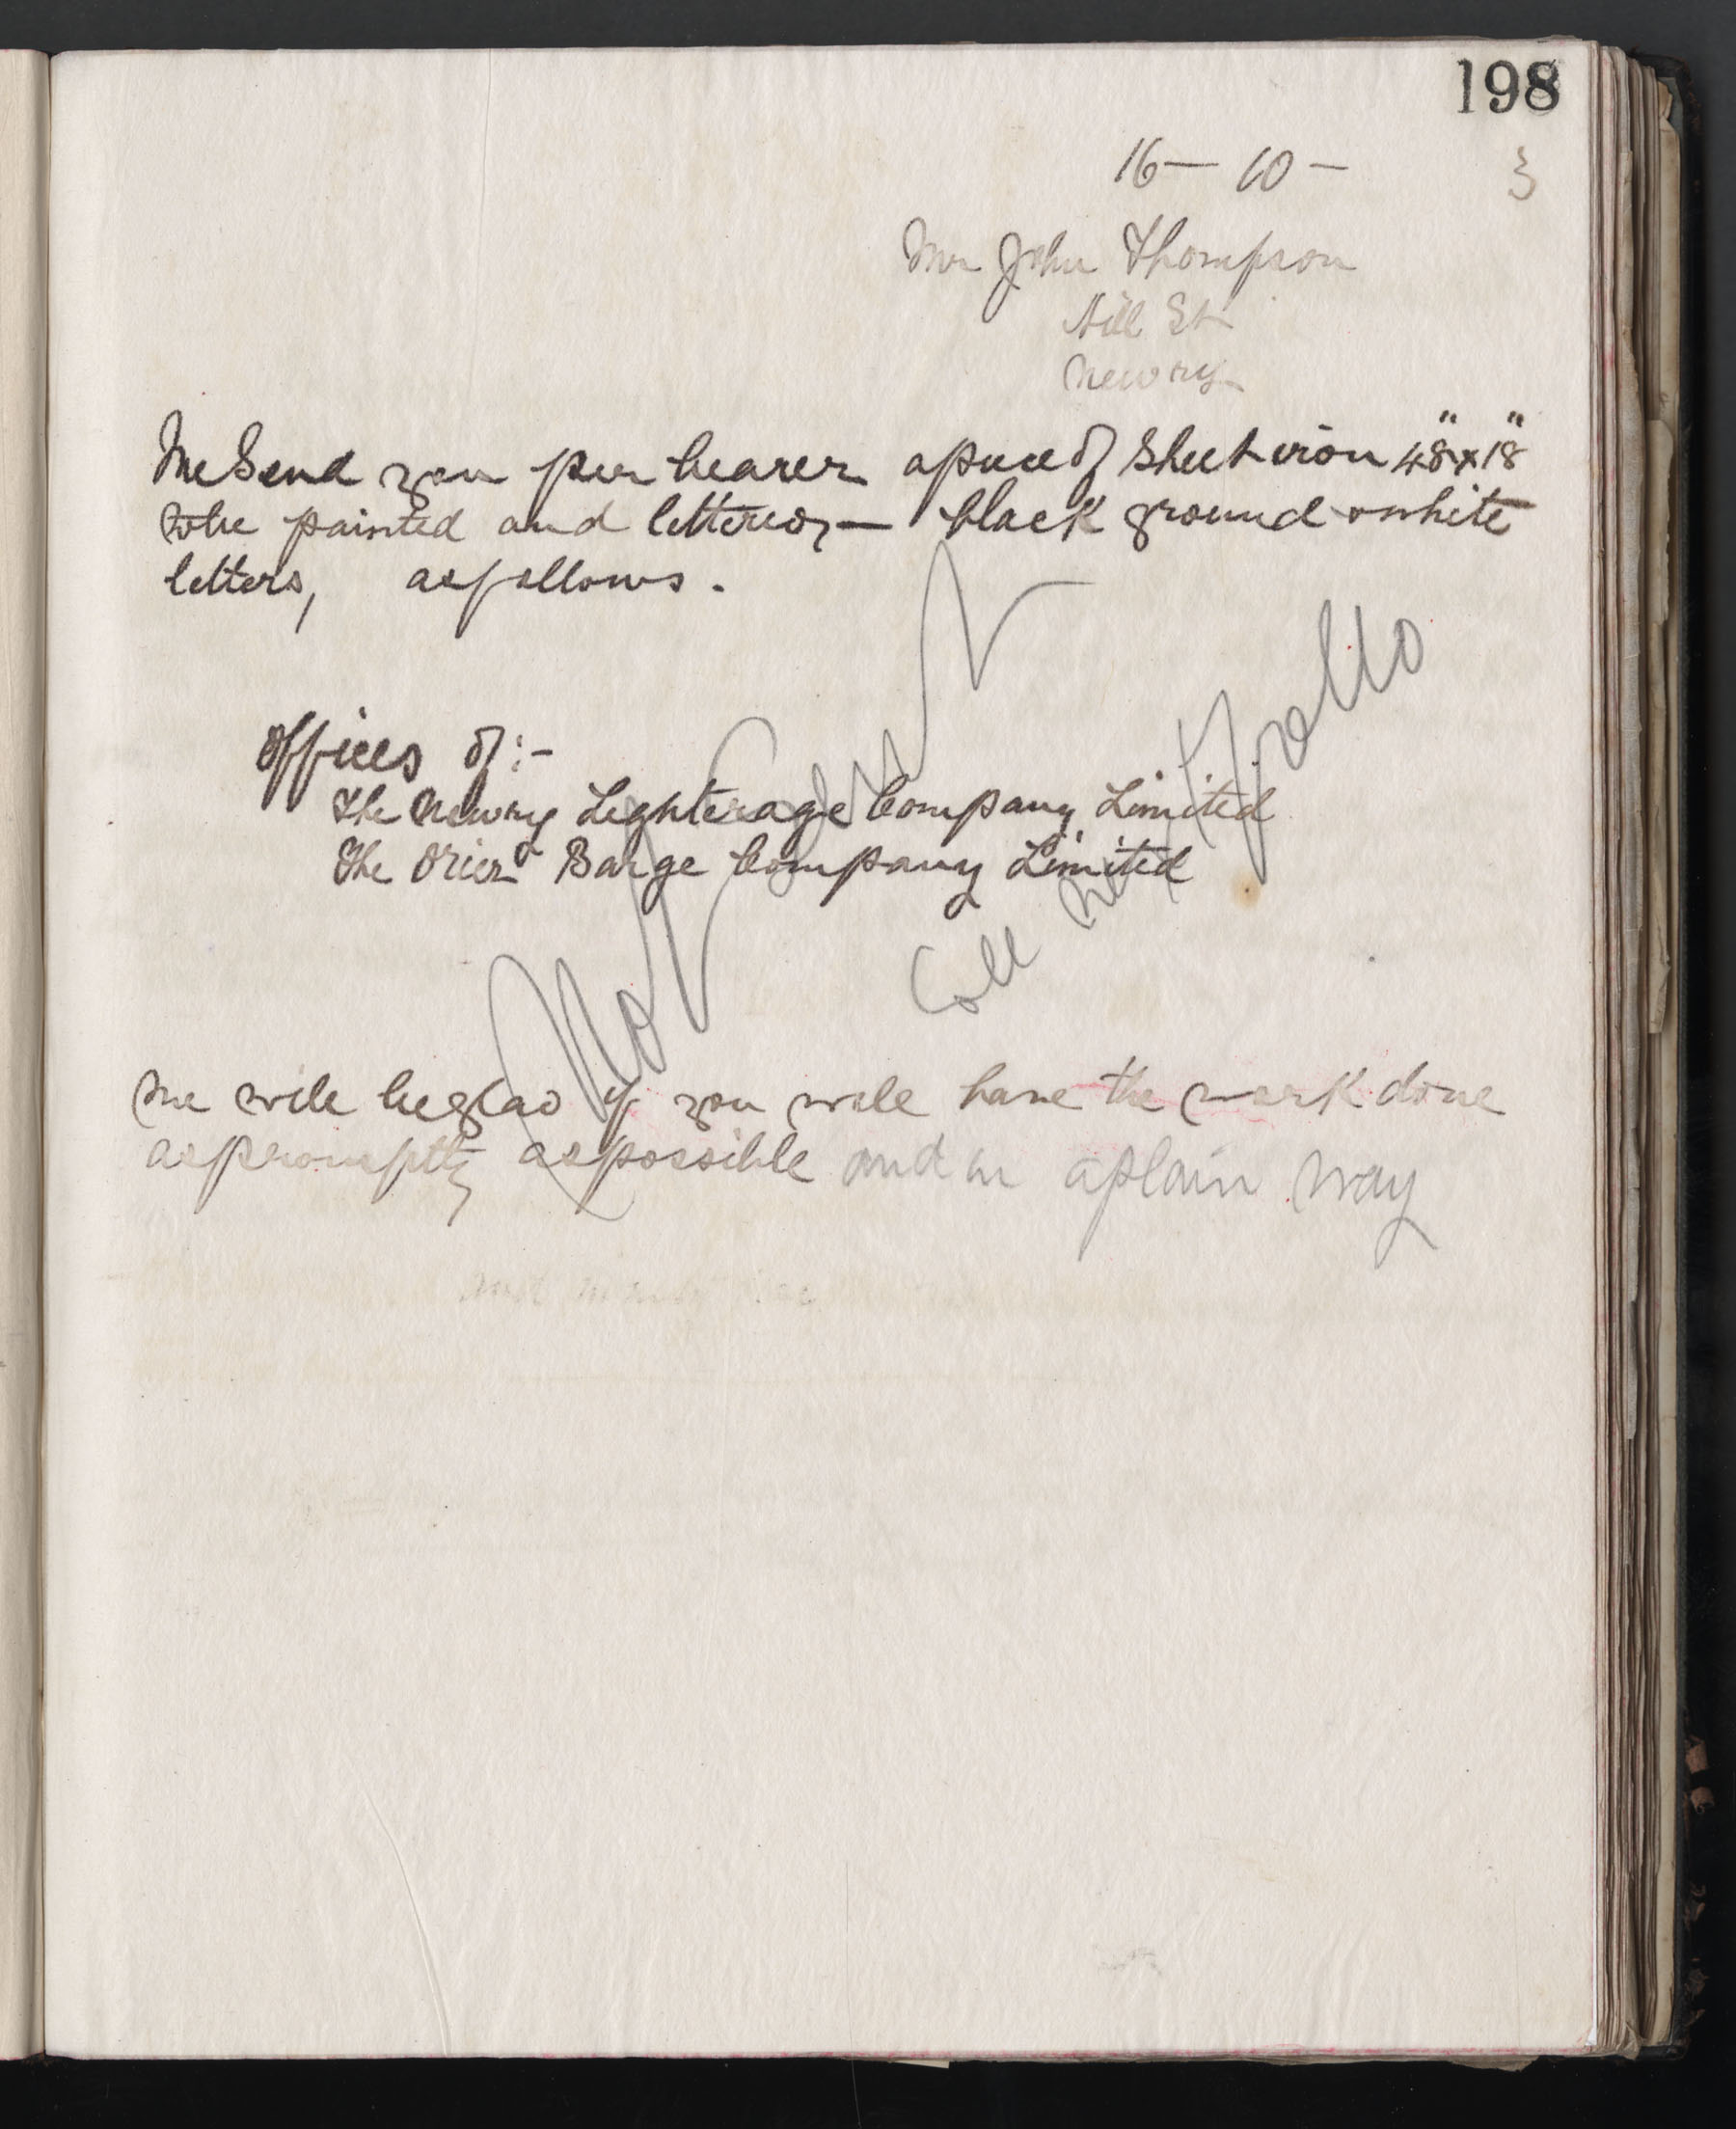 198
16 — 10 — 3
Mr John Thompson
Hill St
Newry
We send you per bearer a piece of sheet iron 48" x 18"
to be painted and lettered, — black ground & white
letters, as follows.
Offices of :-
The Newry Lighterage Company Limited
The Orior Barge Company Limited
Not Sent
See next Folio
We will be glad if you will have the work done
as promptly as possible and in a plain way